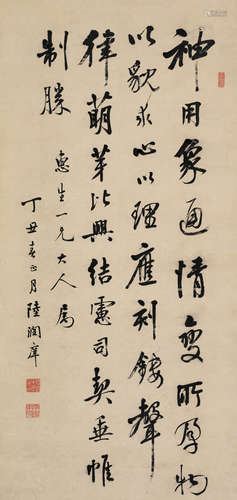 神用象通情變所孕物
以貌求心以理應刻鏤聲
律萌芽比興結慮司契垂帷
制勝
惠生一兄大人屬
丁丑春正月陸潤庠